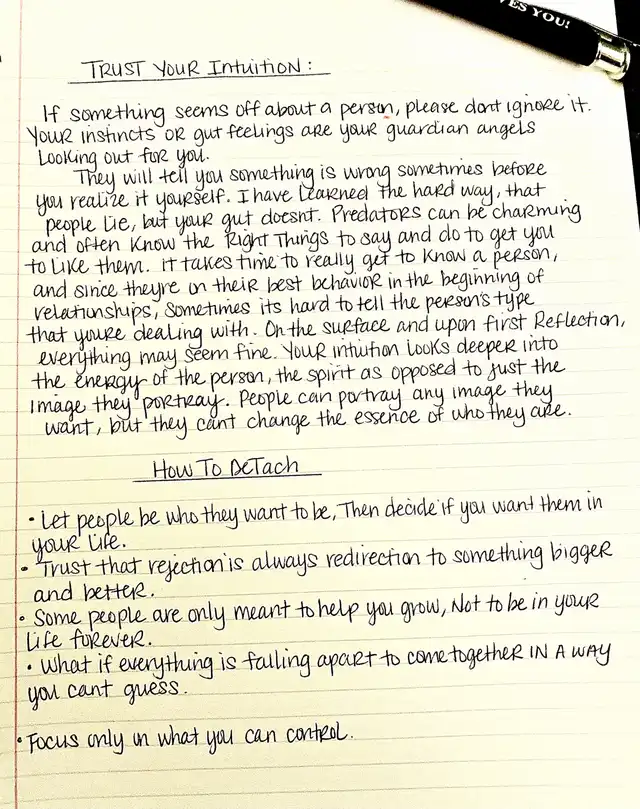 VES YOU!
TRUST YOUR INTUITION:
If something seems off about a person, please dont ignore it.
Your instincts or gut feelings are your guardian angels
Looking out for you.
They will tell you something is wrong sometimes before
you realize it yourself. I have learned the hard way, that
people lie, but your gut doesnt. Predators can be charming
and often know the Right Things to say and do to get you
to like them. it takes time to really get to know a person,
and since theyre on their best behavior in the beginning of
relationships, sometimes its hard to tell the person's type
that youre dealing with. On the surface and upon first Reflection,
everything may seem fine. Your intuition looks deeper into
the energy of the person, the spirit as opposed to just the
image they portray. People can portray any image they
want, but they cant change the essence of who they are.
HOW TO DETACH
• Let people be who they want to be, Then decide if you want them in
your life.
• Trust that rejection is always redirection to something bigger
and better.
• Some people are only meant to help you grow, Not to be in your
life forever.
• What if everything is falling apart to come together IN A WAY
you cant guess.
• Focus only on what you can control.